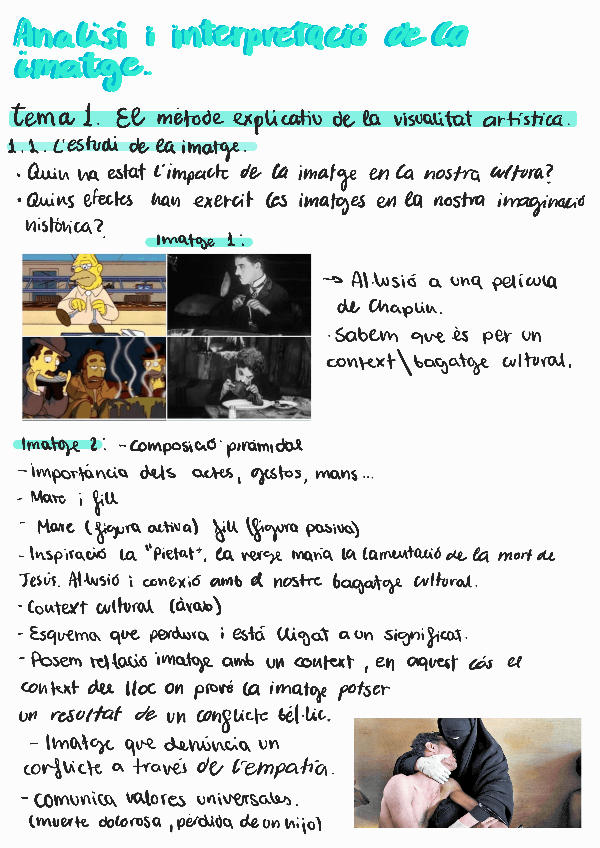 Analisi i interpretació de la
imatge.
tema 1. El mètode explicatiu de la visualitat artística.
1.1. L'estudi de la imatge.
· Quin ha estat l'impacte de la imatge en la nostra cultura?
· Quins efectes han exercit les imatges en la nostra imaginació
històrica?
Imatge 1:
→ Al·lusió a una película
de Chaplin.
· Sabem que és per un
context\bagatge cultural.
Imatge 2: - Composició piramidal
- Importáncia dels actes, gestos, mans...
- Mare i fill
- Mare (figura activa) fill (figura pasiva)
- Inspiració la "Pietat", la verge maria la lamentació de la mort de
Jesús. Al·lusió i conexió amb el nostre bagatge cultural.
- Context cultural (àrab)
- Esquema que perdura i està lligat a un significat.
- Posem rellació imatge amb un context, en aquest cás el
context del lloc on prové la imatge potser
un resultat de un conflicte bél·lic.
- Imatge que denúncia un
conflicte a través de l'empatía.
- comunica valores universales.
(muerte dolorosa, pérdida de un hijo)